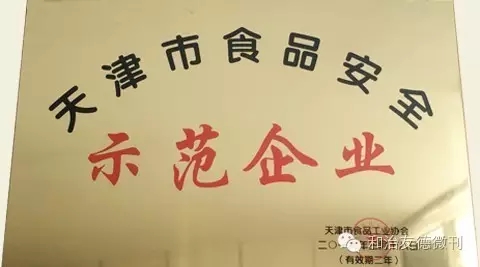 天津市食品安全
示范企业
天津市食品工业协会
二〇
年
(有效期二年)
和治友德微刊